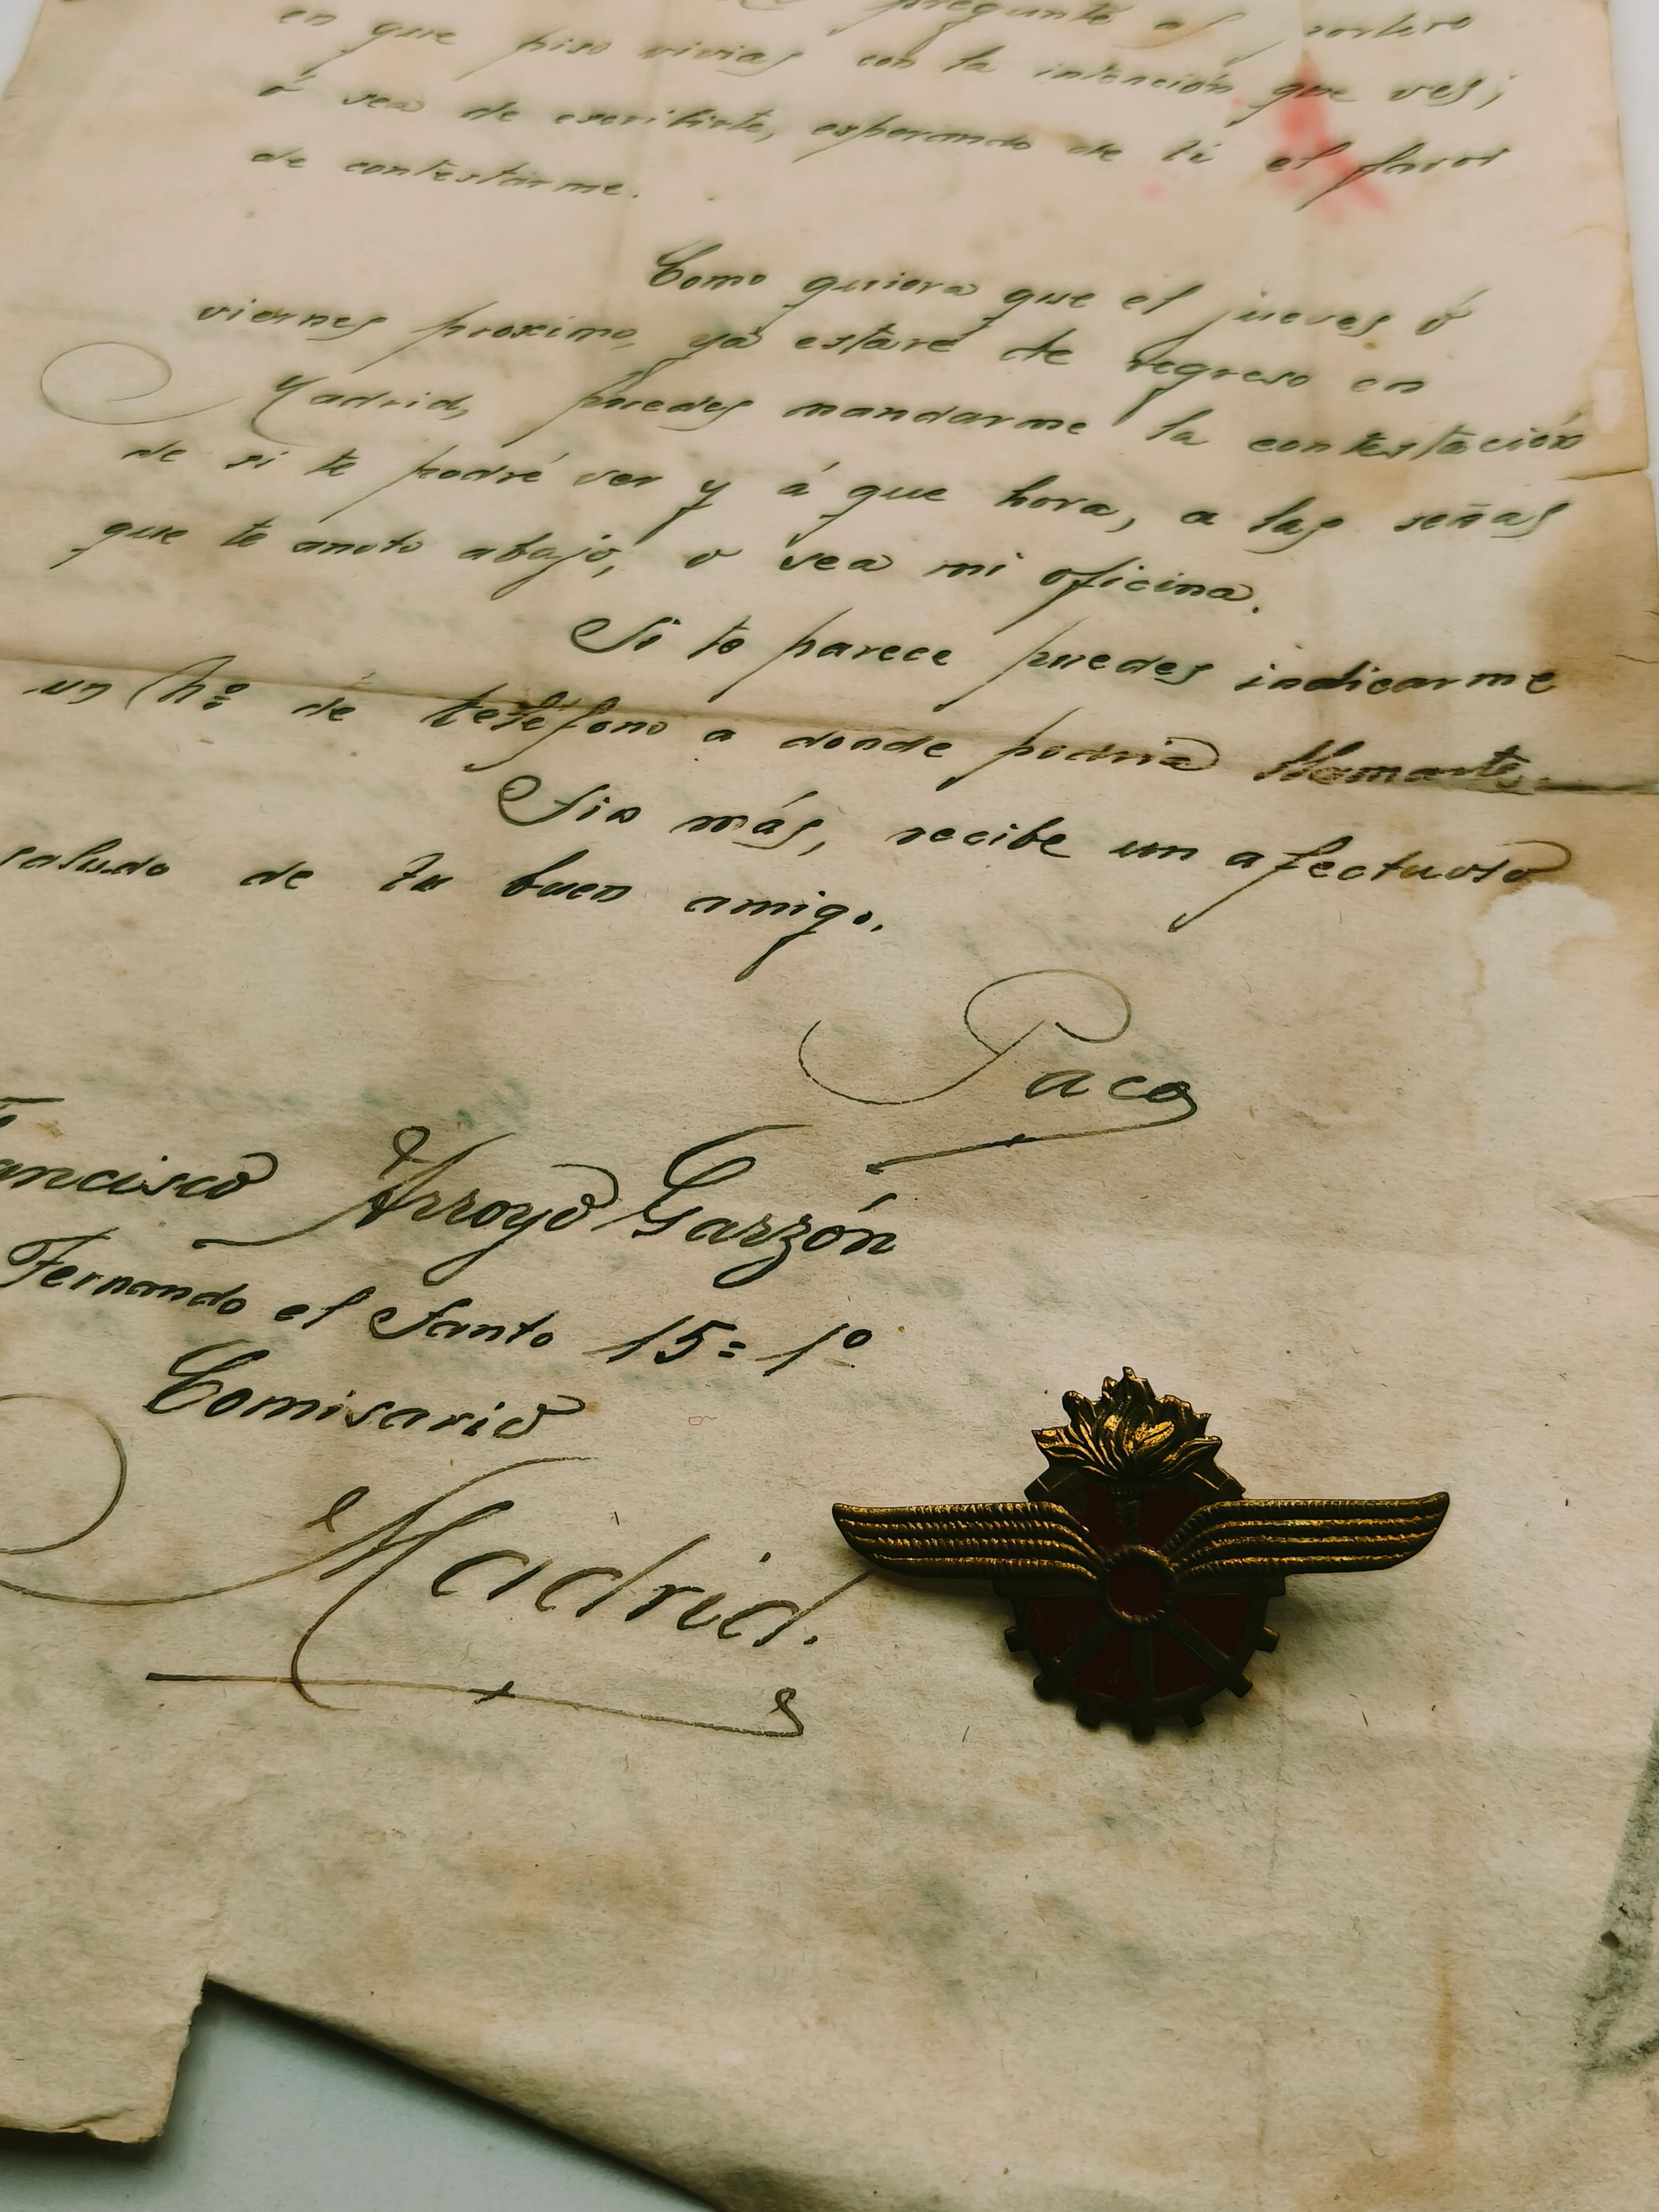 pregunté al portero
en que piso vivias con la intención que ves;
ó sea de escribirte, esperando de ti el favor
de contestarme.
Como quiera que el jueves ó
viernes proximo, ya estaré de regreso en
Madrid, puedes mandarme la contestación
de si te podré ver y á que hora, a las señas
que te anoto abajo, o sea mi oficina.
Si te parece puedes indicarme
un nº de teléfono a donde podria llamarte.
Sin más, recibe un afectuoso
saludo de tu buen amigo.
Paco
Francisco Arroyo Garzón
Fernando el Santo 15= 1º
Comisario
Madrid.